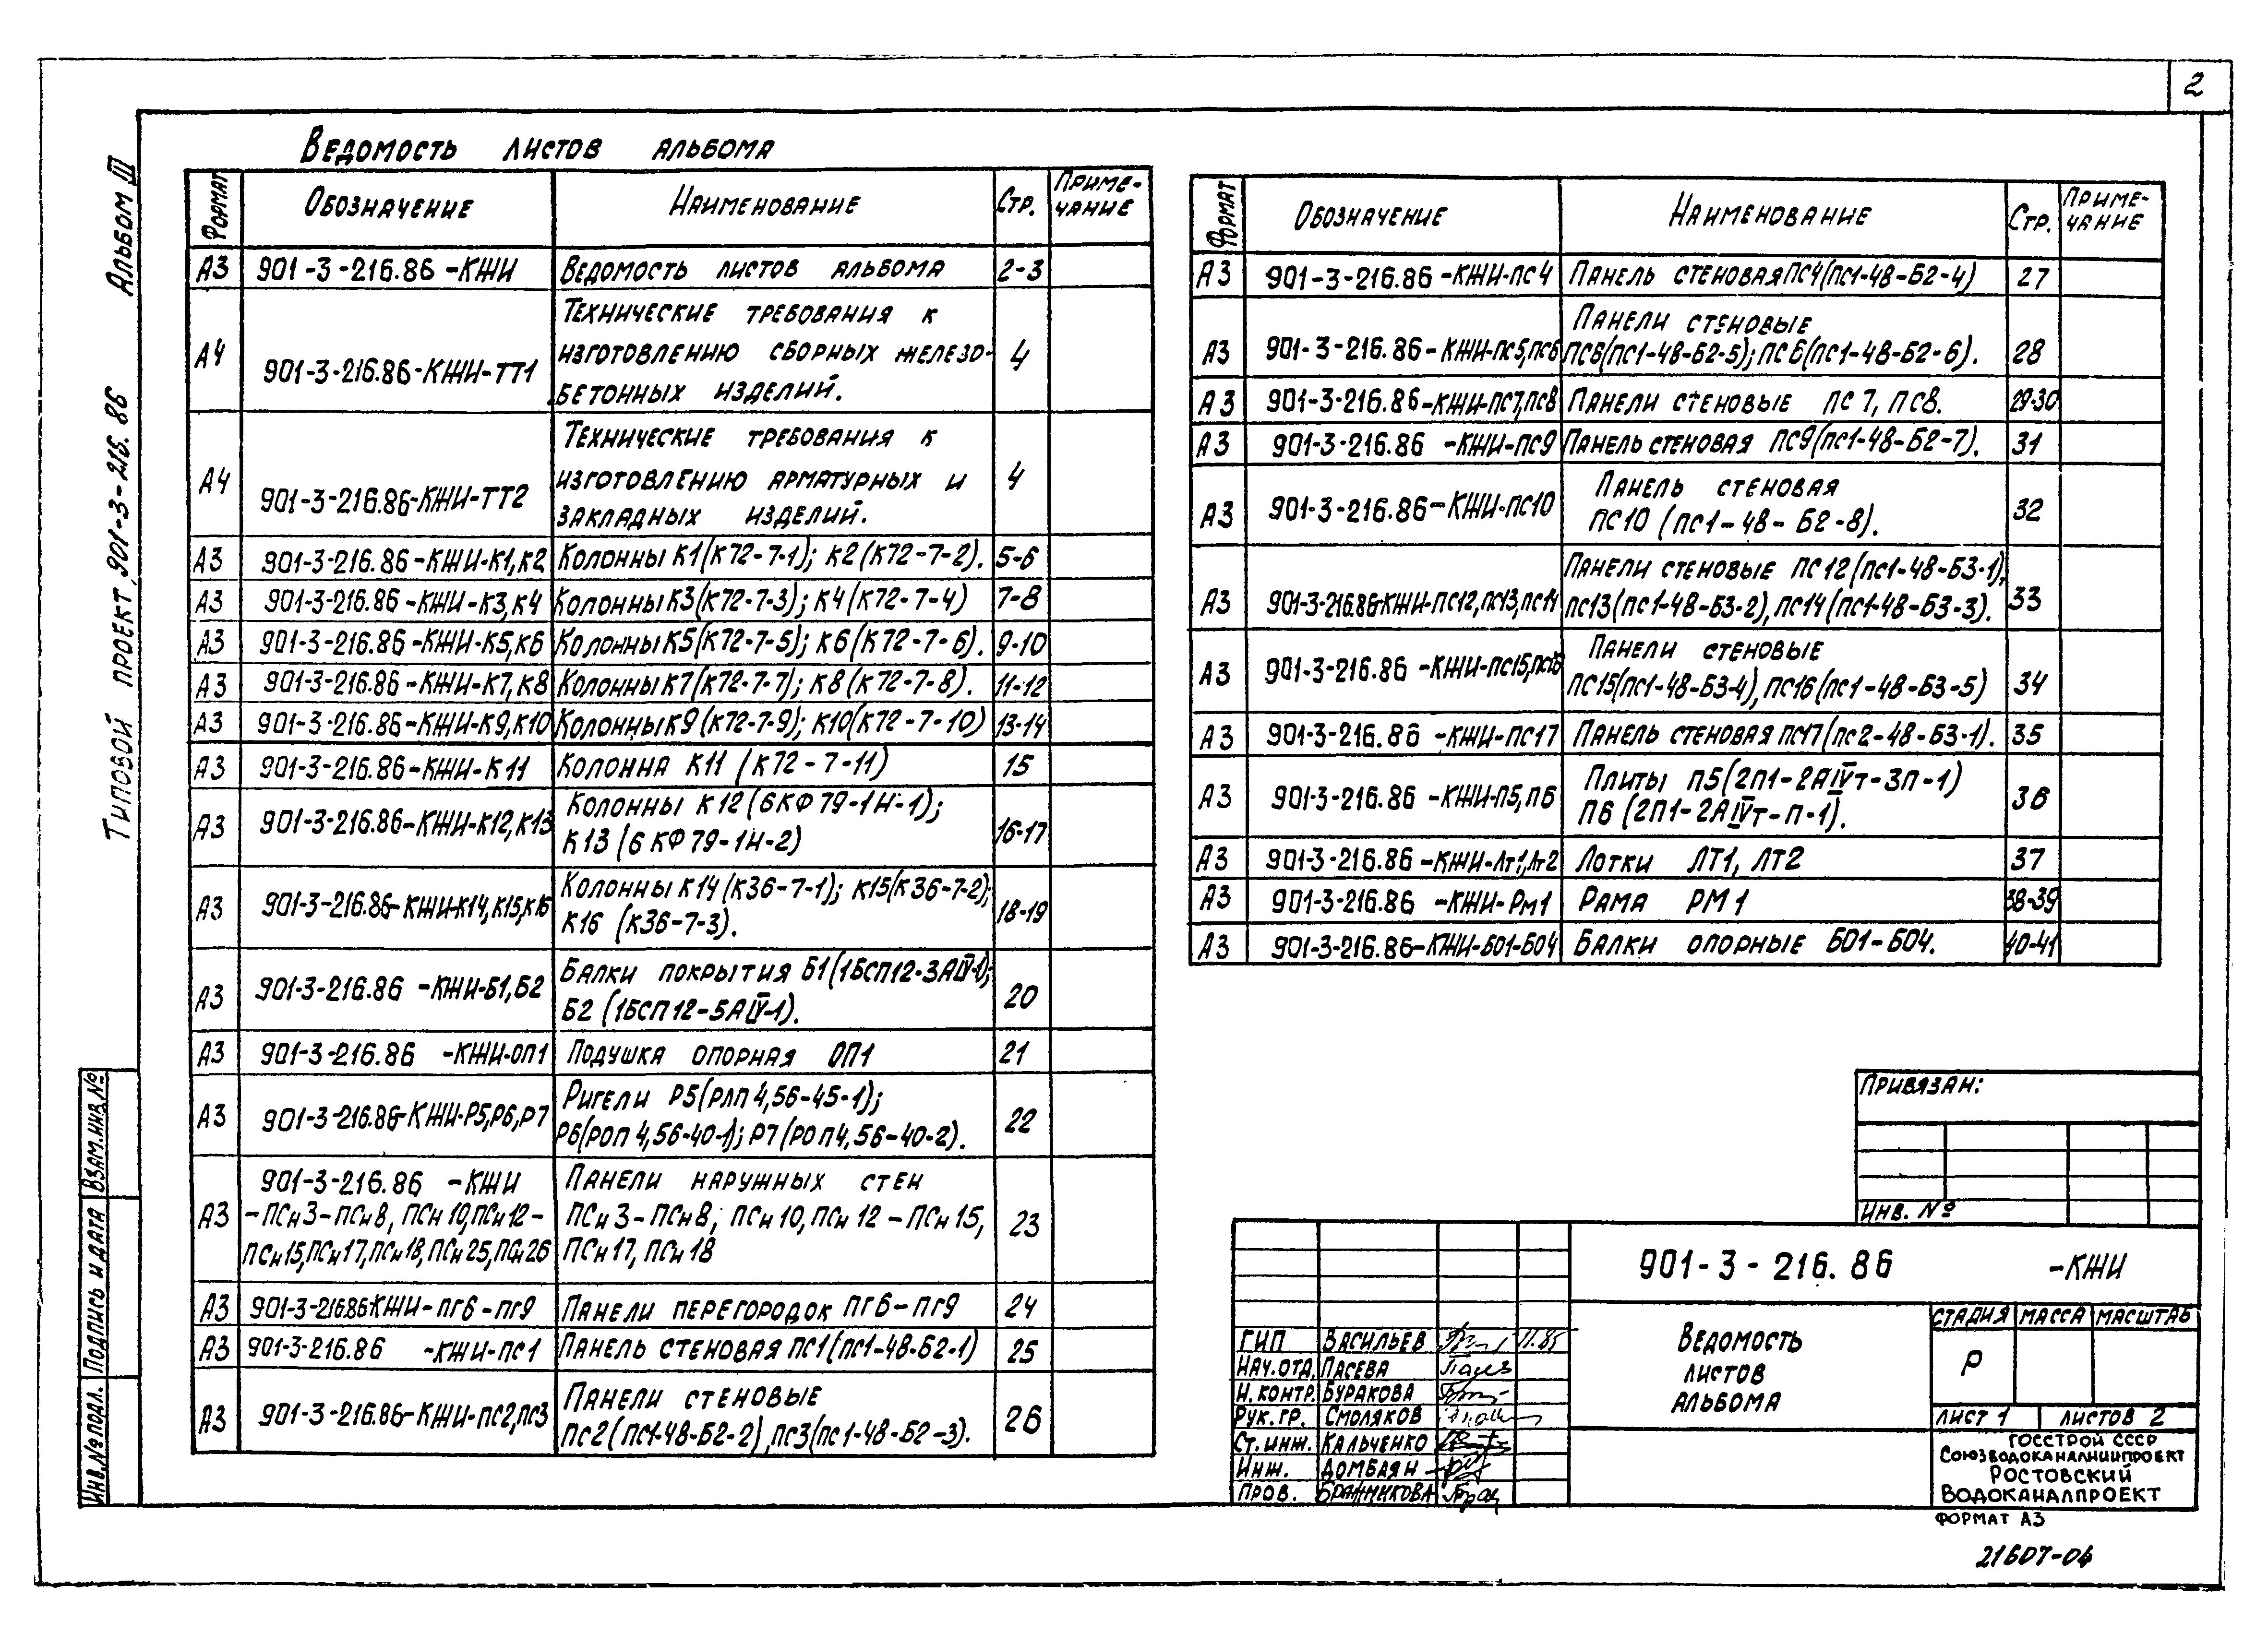 2
Альбом III
Типовой проект 901-3-216.86
Ведомость листов альбома
Формат Обозначение Наименование Стр. Примечание
А3 901-3-216.86-КЖИ Ведомость листов альбома 2-3
А4 901-3-216.86-КЖИ-ТТ1 Технические требования к
изготовлению сборных железо-
бетонных изделий. 4
А4 901-3-216.86-КЖИ-ТТ2 Технические требования к
изготовлению арматурных и
закладных изделий. 4
А3 901-3-216.86-КЖИ-К1,К2 Колонны К1(К72-7-1); К2(К72-7-2). 5-6
А3 901-3-216.86-КЖИ-К3,К4 Колонны К3(К72-7-3); К4(К72-7-4) 7-8
А3 901-3-216.86-КЖИ-К5,К6 Колонны К5(К72-7-5); К6(К72-7-6). 9-10
А3 901-3-216.86-КЖИ-К7,К8 Колонны К7(К72-7-7); К8(К72-7-8). 11-12
А3 901-3-216.86-КЖИ-К9,К10 Колонны К9(К72-7-9); К10(К72-7-10) 13-14
А3 901-3-216.86-КЖИ-К11 Колонна К11 (К72-7-11) 15
А3 901-3-216.86-КЖИ-К12,К13 Колонны К12(6КФ79-1Н-1);
К13(6КФ79-1Н-2) 16-17
А3 901-3-216.86-КЖИ-К14,К15,К16 Колонны К14(К36-7-1); К15(К36-7-2);
К16 (К36-7-3). 18-19
А3 901-3-216.86-КЖИ-Б1,Б2 Балки покрытия Б1(1БСП12-3АIV-1);
Б2(1БСП12-5АIV-1). 20
А3 901-3-216.86-КЖИ-ОП1 Подушка опорная ОП1 21
А3 901-3-216.86-КЖИ-Р5,Р6,Р7 Ригели Р5(РЛП4,56-45-1);
Р6(РОП4,56-40-1); Р7(РОП4,56-40-2). 22
А3 901-3-216.86-КЖИ Панели наружных стен
-ПСн3-ПСн8, ПСн10,ПСн12- ПСн3-ПСн8, ПСн10,ПСн12-ПСн15, 23
ПСн15,ПСн17,ПСн18,ПСн25,ПСн26 ПСн17, ПСн18
А3 901-3-216.86-КЖИ-ПГ6-ПГ9 Панели перегородок ПГ6-ПГ9 24
А3 901-3-216.86 -КЖИ-ПС1 Панель стеновая ПС1(ПС1-48-Б2-1) 25
А3 901-3-216.86-КЖИ-ПС2,ПС3 Панели стеновые
ПС2(ПС1-48-Б2-2), ПС3(ПС1-48-Б2-3). 26
Формат Обозначение Наименование Стр. Примечание
А3 901-3-216.86-КЖИ-ПС4 Панель стеновая ПС4(ПС1-48-Б2-4) 27
А3 901-3-216.86-КЖИ-ПС5,ПС6 Панели стеновые
ПС6(ПС1-48-Б2-5); ПС6(ПС1-48-Б2-6). 28
А3 901-3-216.86-КЖИ-ПС7,ПС8 Панели стеновые ПС7, ПС8. 29-30
А3 901-3-216.86-КЖИ-ПС9 Панель стеновая ПС9(ПС1-48-Б2-7). 31
А3 901-3-216.86-КЖИ-ПС10 Панель стеновая
ПС10 (ПС1-48-Б2-8). 32
А3 901-3-216.86-КЖИ-ПС12,ПС13,ПС14 Панели стеновые ПС12(ПС1-48-Б3-1),
ПС13(ПС1-48-Б3-2), ПС14(ПС1-48-Б3-3). 33
А3 901-3-216.86-КЖИ-ПС15,ПС16 Панели стеновые
ПС15(ПС1-48-Б3-4), ПС16(ПС1-48-Б3-5) 34
А3 901-3-216.86-КЖИ-ПС17 Панель стеновая ПС17(ПС2-48-Б3-1). 35
А3 901-3-216.86-КЖИ-П5,П6 Плиты П5(2П1-2АIVт-3П-1)
П6(2П1-2АIVт-П-1). 36
А3 901-3-216.86-КЖИ-ЛТ1,ЛТ2 Лотки ЛТ1, ЛТ2 37
А3 901-3-216.86-КЖИ-РМ1 Рама РМ1 38-39
А3 901-3-216.86-КЖИ-БО1-БО4 Балки опорные БО1-БО4. 40-41
Привязан:
Инв. №
901-3-216.86 -КЖИ
Ведомость
листов
альбома
Стадия Масса Масштаб
Р
Лист 1 Листов 2
Госстрой СССР
Союзводоканалниипроект
Ростовский
Водоканалпроект
ГИП Васильев 11.85
Нач.отд. Пасева
Н.контр. Буракова
Рук.гр. Смоляков
Ст.инж. Кальченко
Инж. Домбаян
Пров. Бражникова
Формат А3
21607-04
Взам.инв.№
Подпись и дата
Инв.№ подл.